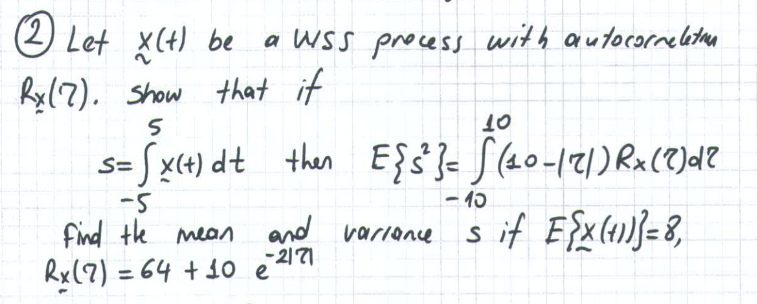 ② Let x(t) be a WSS process with autocorrelation
Rx(τ). Show that if
s = ∫_{-5}^{5} x(t) dt then E{s²} = ∫_{-10}^{10} (10-|τ|) Rx(τ)dτ
Find the mean and variance s if E{x(t)}=8,
Rx(τ) = 64 + 10 e^{-2|τ|}